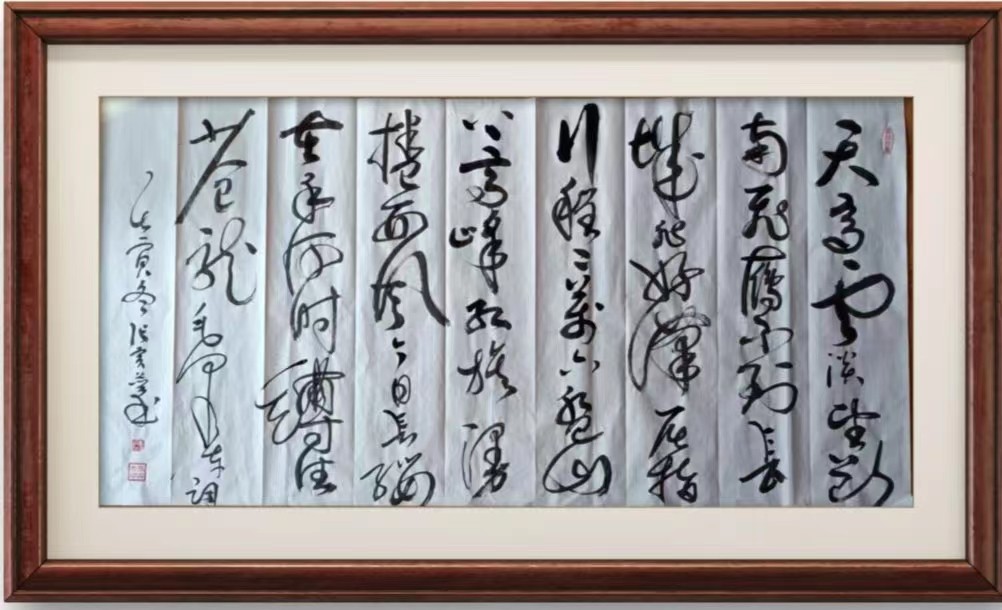 天高云淡望断
南飛雁不到长
城非好漢屈指
行程二萬六盘山
上高峰红旗漫
捲西风今日长缨
在手何时缚住
苍龙毛泽东词
壬寅冬张